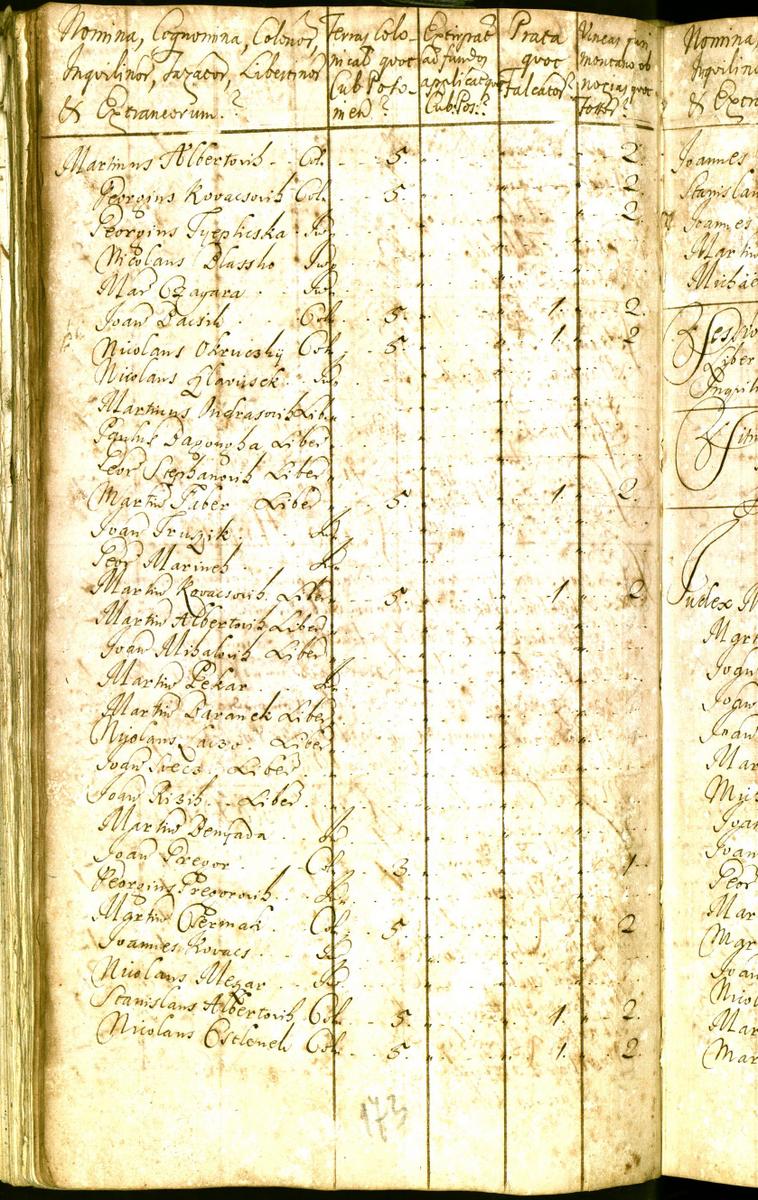 Nomina, Cognomina, Colonor,
Inquilinor, Taxator, Libertinor
& Extraneorum.?
Terras Colo-
nical quot
Cub: Poso-
nien?
Extirpat
ad fundos
applicat quot
Cub: Pos:?
Prata
quot
Falcator?
Vineas
montano
quot
Martinus Albertovich Col. 5. 2
Georgius Kovacsovich Col. 5. 2
Georgius Tyeplicska Inq 2
Nicolaus Blassko Inq
Mar Czagara Inq
Joan Dacsich Col. 5. 1. 2
Nicolaus Okruczky Col. 5. 1. 2
Nicolaus Hlavisek In
Martinus Indrasovich Liber
Paulus Daponoha Liber
Geor Stephanovich Liber
Martin Faber Liber 5. 1. 2
Joan Truszik In
Geor Marinch In
Martin Kovacsovich Liber 5. 1. 2
Martin Albertovich Liber
Joan Mihalovich Liber
Martin Pekar In
Martin Baranek Liber
Nicolaus Laczo Liber
Joan Svecz Liber
Joan Rizih Liber
Martin Benyada In
Joan Prevor Col. 3. 1
Georgius Prevorovich In
Martin Csermak Col. 5. 2
Joannes Kovacs In
Nicolaus Mezar In
Stanislaus Albertovich Col. 5. 1. 2
Nicolaus Estlench Col. 5. 1. 2
173
Nomina
Inquilin
& Extra
Joannes
Stanislau
Joannes
Martin
Michae
Sessio
Liber
Inquili
Judex M
Mart
Joan
Joan
Joan
Mar
Mic
Joan
Joan
Geor
Mar
Mar
Joan
Nico
Mar
Mar